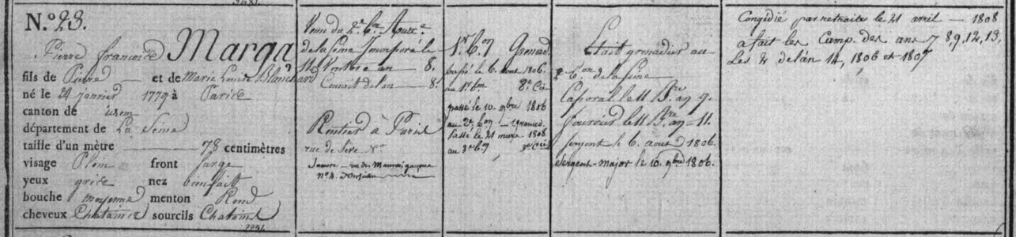 N.º 23.
Pierre françois Marga
fils de Pierre et de Marie Louise Blanchard
né le 24 janvier 1779 à Paris
canton de idem
département de La Seine
taille d'un mètre 78 centimètres
visage Plein front large
yeux gris nez bienfait
bouche moyenne menton Rond
cheveux Chatains sourcils Chatains
Venu du 2.e b.on
de la Seine incorporé le
an 8.
8.
Rentier à Paris
rue de
N.º 4.
1.er b.on Grenad.
passé le 6. aout 1806.
au 1.er b.on 8.e Cie
passé le 10. 9bre 1806
au 2.e b.on
passé le 21 mars 1808
au 3.e b.on
Etait grenadier au
2.e b.on de la Seine
Caporal le 11 Bre an 9.
fourrier le 11 Bre an 11.
sergent le 6. aout 1806.
sergent-major le 10. 9bre 1806.
Congédié par retraite le 21 avril 1808
a fait les Camp. des ans 7 8 9, 12, 13,
Les de l'an 14, 1806 et 1807